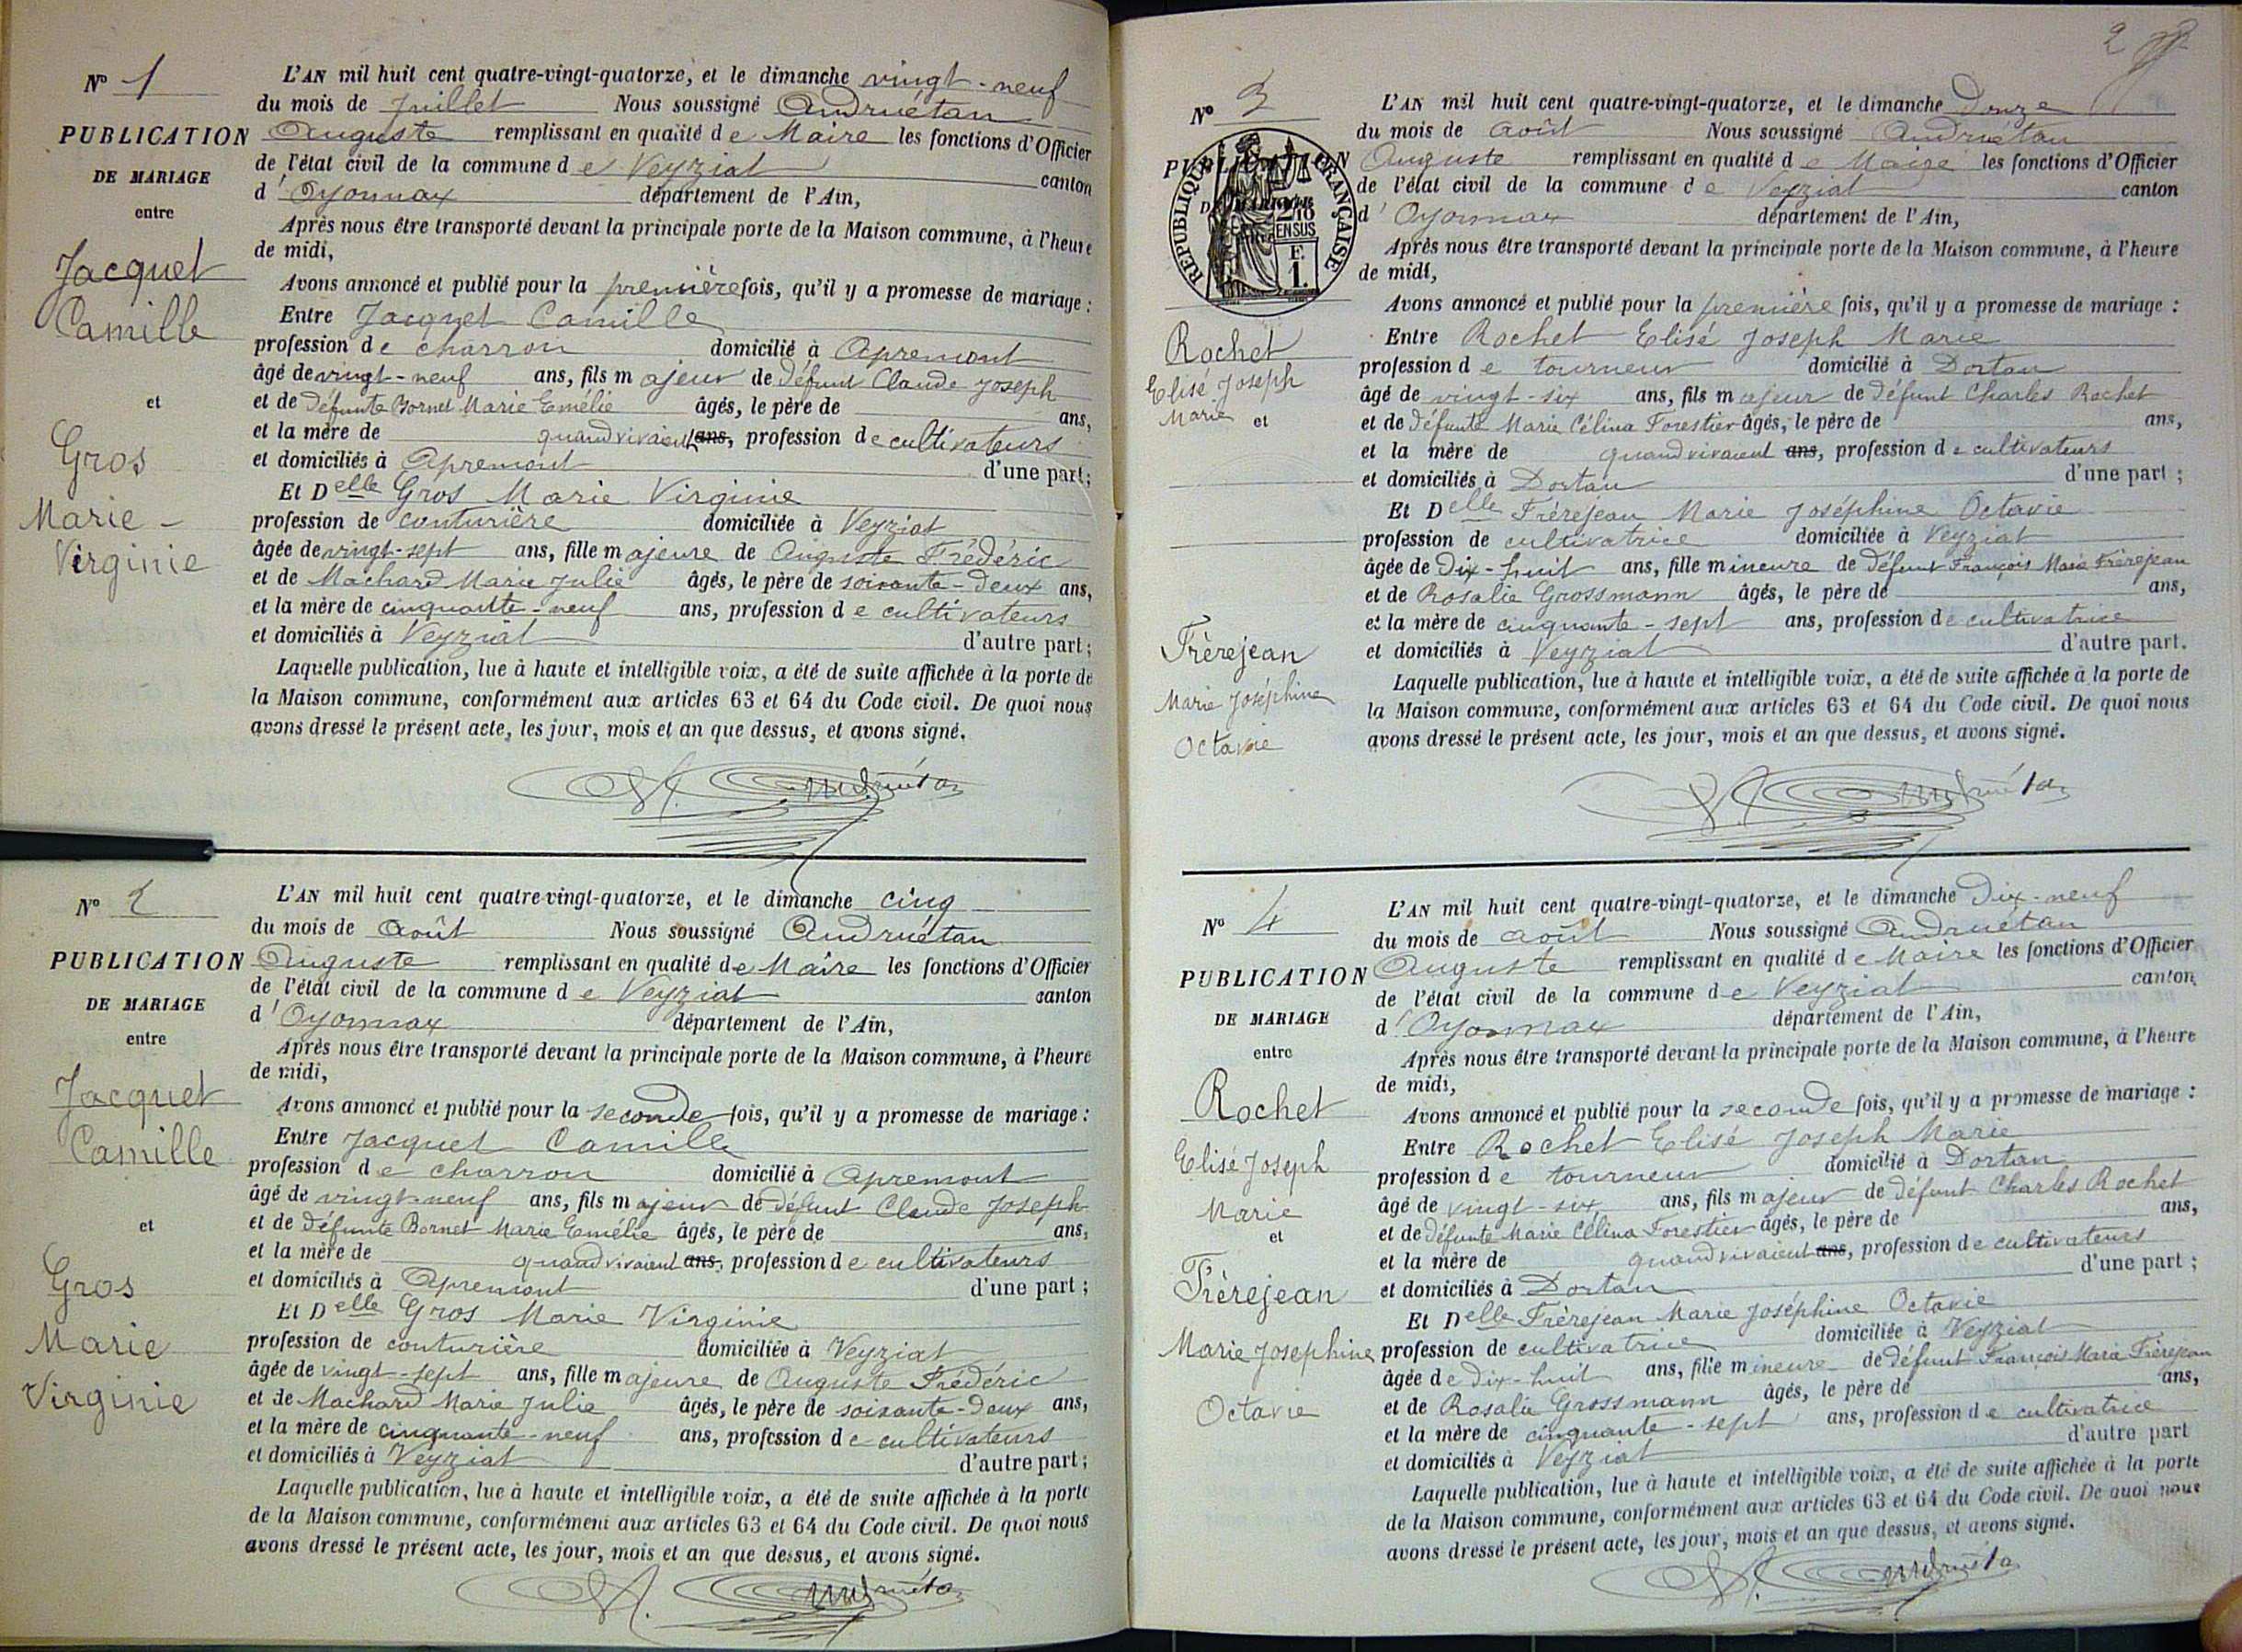 Nº 1
PUBLICATION
DE MARIAGE
entre
Jacquet
Camille
et
Gros
Marie -
Virginie
L'AN mil huit cent quatre-vingt-quatorze, et le dimanche vingt-neuf
du mois de Juillet Nous soussigné Andruétan
Auguste remplissant en qualité de Maire les fonctions d'Officier
de l'état civil de la commune de Veyziat canton
d'Oyonnax département de l'Ain,
Après nous être transporté devant la principale porte de la Maison commune, à l'heure
de midi,
Avons annoncé et publié pour la première fois, qu'il y a promesse de mariage :
Entre Jacquet Camille
profession de charron domicilié à Apremont
âgé de vingt-neuf ans, fils majeur de défunt Claude Joseph
et de défunte Bornet Marie Emélie âgés, le père de ans,
et la mère de quand vivaient ans, profession de cultivateurs
et domiciliés à Apremont d'une part;
Et Delle Gros Marie Virginie
profession de couturière domiciliée à Veyziat
âgée de vingt-sept ans, fille majeure de Auguste Frédéric
et de Machard Marie Julie âgés, le père de soixante-deux ans,
et la mère de cinquante-neuf ans, profession de cultivateurs
et domiciliés à Veyziat d'autre part;
Laquelle publication, lue à haute et intelligible voix, a été de suite affichée à la porte de
la Maison commune, conformément aux articles 63 et 64 du Code civil. De quoi nous
avons dressé le présent acte, les jour, mois et an que dessus, et avons signé.
A. Andruétan
Nº 2
PUBLICATION
DE MARIAGE
entre
Jacquet
Camille
et
Gros
Marie
Virginie
L'AN mil huit cent quatre-vingt-quatorze, et le dimanche cinq
du mois de Août Nous soussigné Andruétan
Auguste remplissant en qualité de Maire les fonctions d'Officier
de l'état civil de la commune de Veyziat canton
d'Oyonnax département de l'Ain,
Après nous être transporté devant la principale porte de la Maison commune, à l'heure
de midi,
Avons annoncé et publié pour la seconde fois, qu'il y a promesse de mariage :
Entre Jacquet Camille
profession de charron domicilié à Apremont
âgé de vingt-neuf ans, fils majeur de défunt Claude Joseph
et de défunte Bornet Marie Emélie âgés, le père de ans,
et la mère de quand vivaient ans, profession de cultivateurs
et domiciliés à Apremont d'une part ;
Et Delle Gros Marie Virginie
profession de couturière domiciliée à Veyziat
âgée de vingt-sept ans, fille majeure de Auguste Frédéric
et de Machard Marie Julie âgés, le père de soixante-deux ans,
et la mère de cinquante-neuf ans, profession de cultivateurs
et domiciliés à Veyziat d'autre part ;
Laquelle publication, lue à haute et intelligible voix, a été de suite affichée à la porte
de la Maison commune, conformément aux articles 63 et 64 du Code civil. De quoi nous
avons dressé le présent acte, les jour, mois et an que dessus, et avons signé.
A. Andruétan
2
Nº 3
PUBLICATION
DE MARIAGE
REPUBLIQUE FRANÇAISE
2/10
EN SUS
F.
1.
Rochet
Elisé Joseph
Marie
et
Frèrejean
Marie Joséphine
Octavie
L'AN mil huit cent quatre-vingt-quatorze, et le dimanche Douze
du mois de août Nous soussigné Andruétan
Auguste remplissant en qualité de Maire les fonctions d'Officier
de l'état civil de la commune de Veyziat canton
d'Oyonnax département de l'Ain,
Après nous être transporté devant la principale porte de la Maison commune, à l'heure
de midi,
Avons annoncé et publié pour la première fois, qu'il y a promesse de mariage :
Entre Rochet Elisé Joseph Marie
profession de tourneur domicilié à Dortan
âgé de vingt-six ans, fils majeur de défunt Charles Rochet
et de défunte Marie Célina Forestier âgés, le père de ans,
et la mère de quand vivaient ans, profession de cultivateurs
et domiciliés à Dortan d'une part ;
Et Delle Frèrejean Marie Joséphine Octavie
profession de cultivatrice domiciliée à Veyziat
âgée de Dix-huit ans, fille mineure de défunt François Marie Frèrejean
et de Rosalie Grossmann âgés, le père de ans,
et la mère de cinquante-sept ans, profession de cultivatrice
et domiciliés à Veyziat d'autre part.
Laquelle publication, lue à haute et intelligible voix, a été de suite affichée à la porte de
la Maison commune, conformément aux articles 63 et 64 du Code civil. De quoi nous
avons dressé le présent acte, les jour, mois et an que dessus, et avons signé.
A. Andruétan
Nº 4
PUBLICATION
DE MARIAGE
entre
Rochet
Elisé Joseph
Marie
et
Frèrejean
Marie Josephine
Octavie
L'AN mil huit cent quatre-vingt-quatorze, et le dimanche Dix-neuf
du mois de août Nous soussigné Andruétan
Auguste remplissant en qualité de Maire les fonctions d'Officier
de l'état civil de la commune de Veyziat canton
d'Oyonnax département de l'Ain,
Après nous être transporté devant la principale porte de la Maison commune, à l'heure
de midi,
Avons annoncé et publié pour la seconde fois, qu'il y a promesse de mariage :
Entre Rochet Elisé Joseph Marie
profession de tourneur domicilié à Dortan
âgé de vingt-six ans, fils majeur de défunt Charles Rochet
et de défunte Marie Célina Forestier âgés, le père de ans,
et la mère de quand vivaient ans, profession de cultivateurs
et domiciliés à Dortan d'une part ;
Et Delle Frèrejean Marie Joséphine Octavie
profession de cultivatrice domiciliée à Veyziat
âgée de Dix-huit ans, fille mineure de défunt François Marie Frèrejean
et de Rosalie Grossmann âgés, le père de ans,
et la mère de cinquante-sept ans, profession de cultivatrice
et domiciliés à Veyziat d'autre part
Laquelle publication, lue à haute et intelligible voix, a été de suite affichée à la porte
de la Maison commune, conformément aux articles 63 et 64 du Code civil. De quoi nous
avons dressé le présent acte, les jour, mois et an que dessus, et avons signé.
A. Andruétan